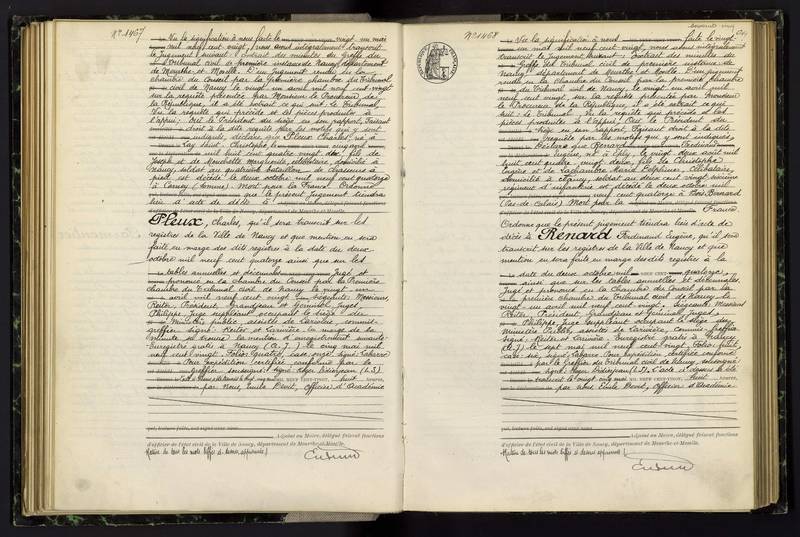 N° 1467
Vu la signification à nous faite le vingt un mai
mil neuf cent vingt, nous avons intégralement transcrit
le jugement suivant : Extrait des minutes du Greffe du
Tribunal civil de première instance de Nancy, département
de Meurthe et Moselle. D'un jugement rendu en la
chambre du conseil par la première chambre du Tribunal
civil de Nancy le vingt un avril mil neuf cent vingt
sur la requête présentée par Monsieur le Procureur de
la République, il a été extrait ce qui suit : le Tribunal
Vu la requête qui précède et les pièces produites à
l'appui, Ouï le Président du siège en son rapport, Faisant
droit à la dite requête par les motifs qui y sont
indiqués, déclare que Pleux Charles, né à
Lay Saint Christophe, le
mil huit cent quatre vingt dix, fils de
Joseph et de Marguerite, célibataire, domicilié à
Nancy, soldat au quatrième bataillon de chasseurs à
pied est décédé le deux octobre mil neuf cent quatorze
à Carnoy (Somme) Mort pour la France Ordonne
que le présent jugement tiendra
lieu d'acte de décès à
Pleux, Charles, qu'il sera transcrit sur les
registres de la Ville de Nancy et que mention en sera
faite en marge des dits registres à la date du deux
octobre mil neuf cent quatorze ainsi que sur les
tables annuelles et décennales. Jugé et
prononcé en la chambre du Conseil par la Première
chambre du Tribunal civil de Nancy le vingt un
avril mil neuf cent vingt Siégeants : Messieurs
Reiter, Président, Grandjean et Géminel, Juges
Philippe Juge suppléant occupant le siège du
Ministère public, assistés de Carivière, commis
greffier Signé : Reiter et Carivière En marge de la
minute se trouve la mention d'enregistrement suivante :
Enregistré gratis à Nancy (A. J.) le cinq mai mil
neuf cent vingt Folio Quatre, case onze signé : Cabasse
Pour Expédition certifiée conforme par le
greffier soussigné : signé Roger Didierjean (L.S.)
MIL NEUF CENT VINGT, huit heures,
par nous, Emile Devit, Officier d'Académie
Adjoint au Maire, délégué faisant fonctions
d'officier de l'état civil de la Ville de Nancy, département de Meurthe-et-Moselle.
N° 1468
Vu la signification à nous faite le vingt
un mai mil neuf cent vingt, nous avons intégralement
transcrit le jugement suivant : Extrait des minutes du
Greffe du Tribunal civil de première instance de
Nancy département de Meurthe et Moselle D'un jugement
rendu en la Chambre du Conseil par la première chambre
du Tribunal civil de Nancy, le vingt un avril mil
neuf cent vingt, sur la requête présentée par Monsieur
le Procureur de la République, il a été extrait ce qui
suit : le Tribunal. Vu la requête qui précède et les
pièces produites à l'appui Ouï le Président du
siège en son rapport, Faisant droit à la dite
requête par les motifs qui y sont indiqués,
Déclare que Renard Ferdinand
Eugène, né à le vingt deux août mil
huit cent quatre vingt douze, fils de Christophe
Eugène et de Marie Delphine, célibataire,
domicilié à Nancy, soldat au deux cent vingt sixième
régiment d'infanterie est décédé le deux octobre mil
neuf cent quatorze à Bois Bernard
(Pas de Calais) Mort pour la
France
Ordonne que le présent jugement tiendra lieu d'acte de
décès à Renard Ferdinand Eugène, qu'il sera
transcrit sur les registres de la Ville de Nancy et que
mention en sera faite en marge des dits registres à la
date du deux octobre mil NEUF CENT quatorze
ainsi que sur les tables annuelles et décennales,
Jugé et prononcé en la chambre du Conseil par
la première chambre du Tribunal civil de Nancy le
vingt un avril mil neuf cent vingt. Siégeants Messieurs
Reiter, Président, Grandjean et Géminel, Juges,
Philippe, Juge suppléant occupant le siège du
Ministère Public, assistés de Carivière, commis greffier
Signé : Reiter et Carivière Enregistré gratis à Nancy
(A. J.) le sept mai mil neuf cent vingt, Folio
case six, signé : Cabasse Pour Expédition certifiée conforme
par le Greffier du Tribunal civil de Nancy, soussigné
signé : Roger Didierjean (L.S.)
transcrit le vingt cinq mai MIL NEUF CENT VINGT, huit heures
par nous Emile Devit, Officier d'Académie
Adjoint au Maire, délégué faisant fonctions
d'officier de l'état civil de la Ville de Nancy, département de Meurthe-et-Moselle.